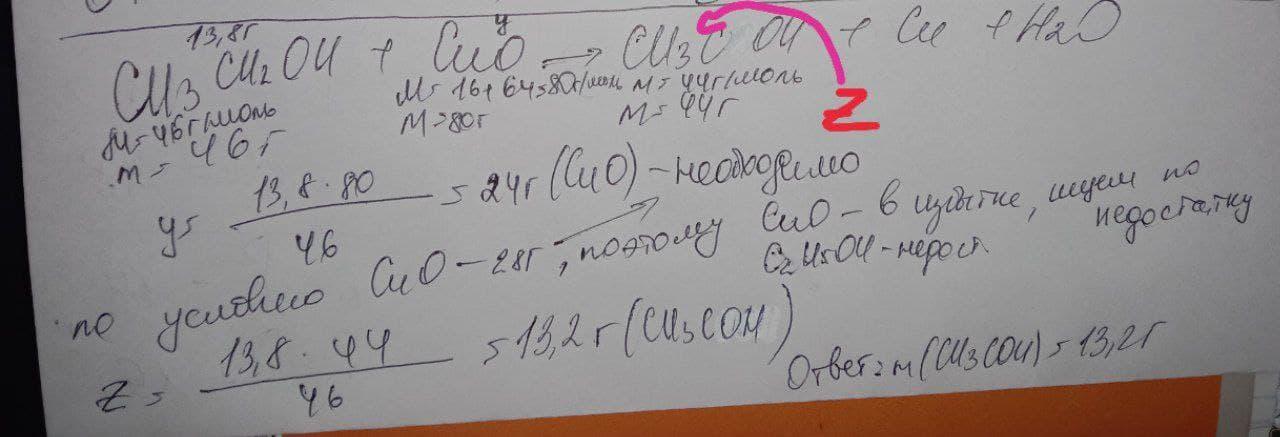 13,8г y
CH3 CH2OH + CuO → CH3C OH + Cu + H2O
M=46г/моль M=16+64=80г/моль M=44г/моль
m=46г m=80г m=44г Z
y= 13,8·80 / 46 = 24г (CuO) - необходимо
по условию CuO - 28г, поэтому CuO - в избытке, ищем по недостатку
C2H5OH - недост
Z= 13,8·44 / 46 = 13,2г (CH3COH)
Ответ: m(CH3COH) = 13,2г